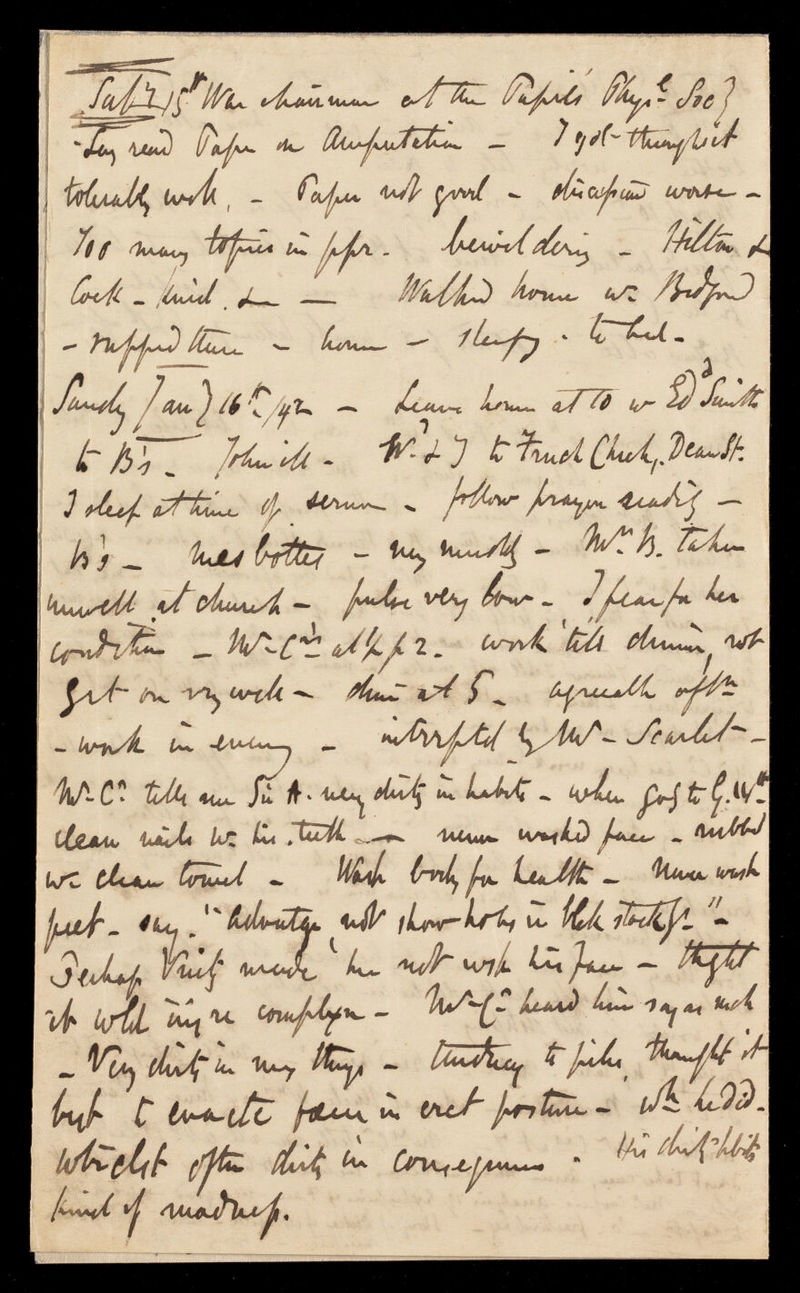 Saty 15th Was chairman at the Pupils' Physl Socy
- Lay read Paper on Amputation - I got through it
tolerably well, - Paper not good - discussion worse -
Too many topics in ppr - bewildering - Hilton &
Cock - kind. & - Walked home wh Bedford
- supped there - home - sleepy - to bed -
Sundy Jany 16th/42 - Leave home at 10 w Edd Smith
to B's - John ill - Wm & I to French Chch, Dean St.
I sleep at time of sermon - follow prayer reading -
B's - Mrs B. taken
unwell at church - pulse very low - I fear for her
condition - Mr C's at ½ p 2 - work till dinner, not
get on vy well - dine at 5 - agreeable aftn
- work in eveng - interrptd by Mr - Scarlet -
Mr C. tells me Sir A. very dirty in habits - when gog to G. IVth
clean nails wh his teeth - never washed face - rubbed
wh clean towel - Wash body for health - Never wash
feet - say. "advantge, not show holes in blck stockgs" -
Perhap Vanity made him not wsh his face - thght
it wld injre complexn - Mr C. heard him say as mch
- Very dirty in my things - tendency to piles, thought it
best to evacte fæces in erect posture - wh he did -
whilst often dirty in consequence - His dirty habits
kind of madness.